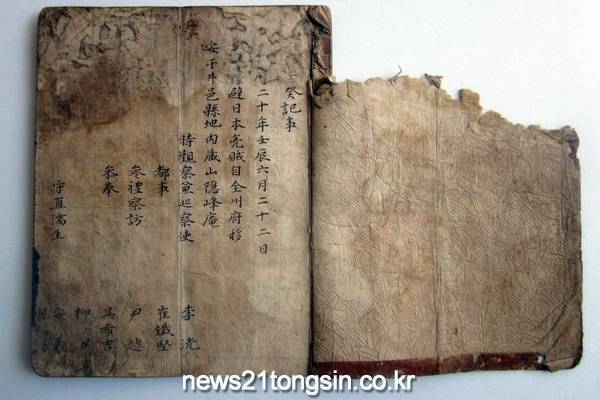 癸記事
二十年壬辰六月二十二日
避日本兇賊自全州府移
安于井邑縣地內藏山隱峰庵
時觀察兼巡察使 李洸
都事 崔鐵堅
參禮察訪 尹
參奉 吳希吉
柳
守直儒生 安
news21tongsin.co.kr